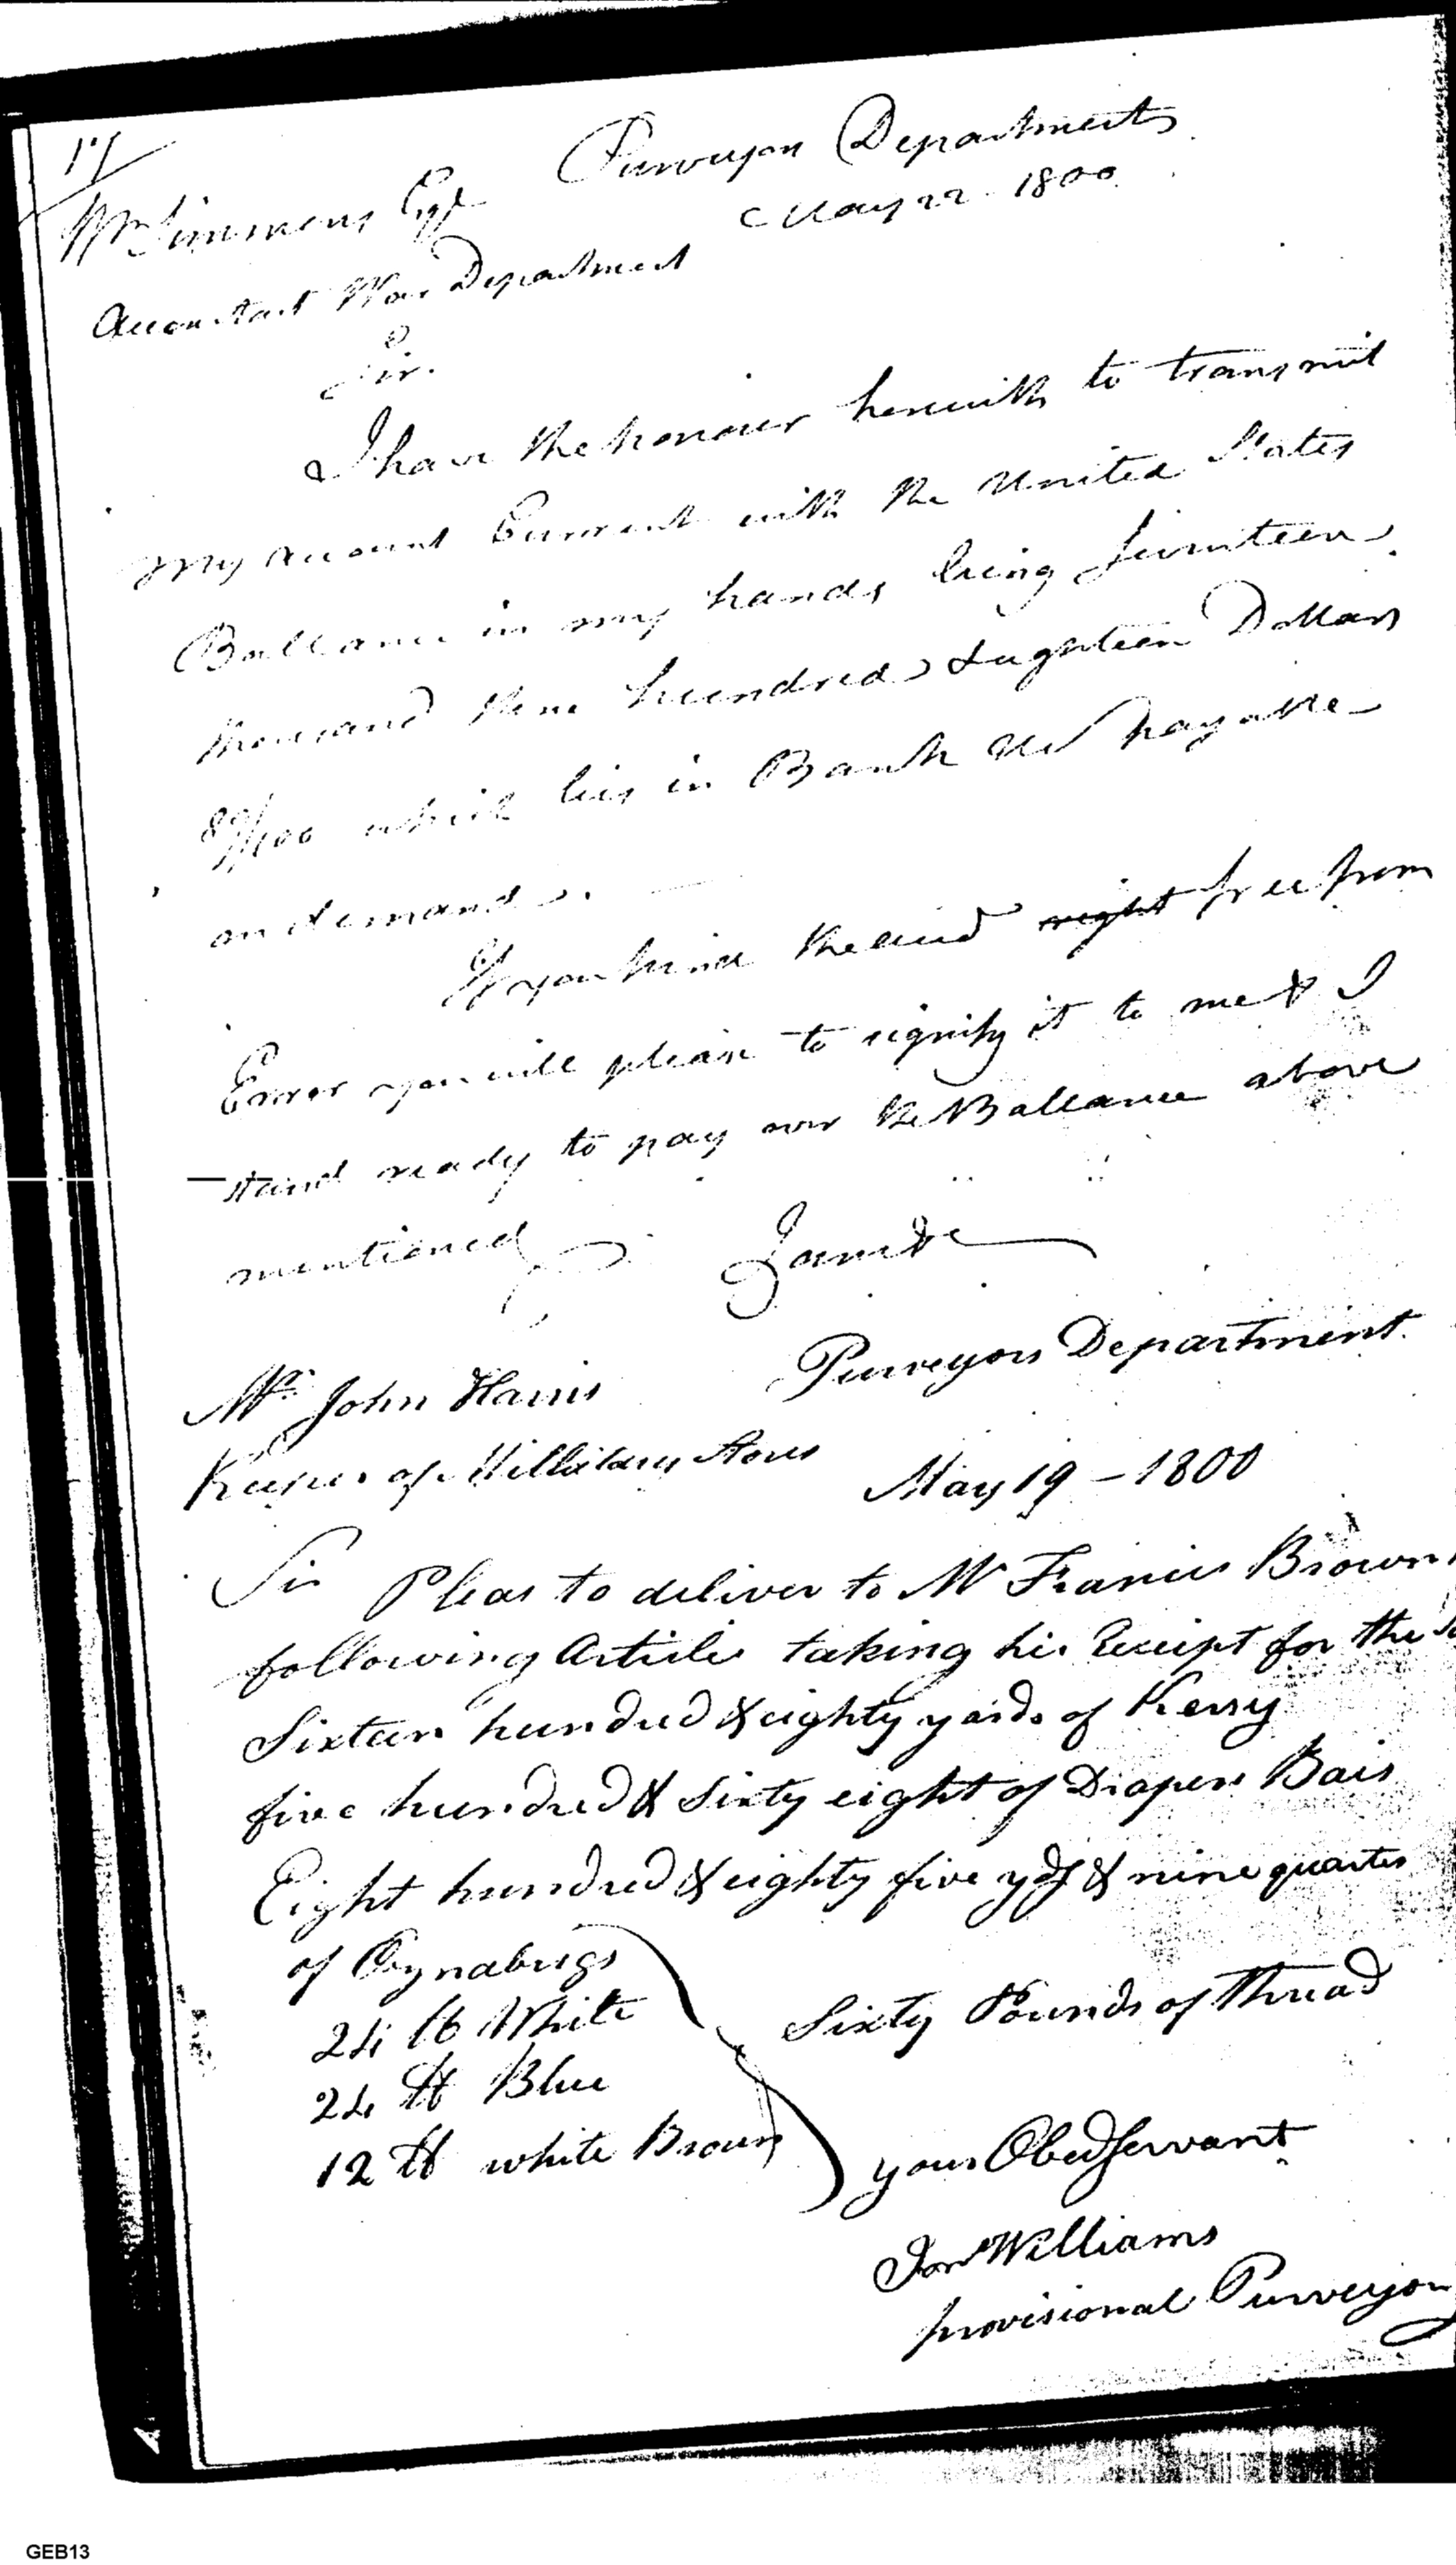 17
Purveyors Department
May 22 1800
Wm Simmons Esqr
Accountant War Department
Sir.
I have the honour herewith to transmit
my account Current with the United States
Ballance in my hands being seventeen
thousand three hundred & Eighteen Dollars
which lies in Bank US payable
on demand.
If you find the and right free from
Error you will please to signify it to me & I
stand ready to pay over the Ballance above
mentioned I am &c
Mr. John Harris
Purveyors Department.
Keeper of Millitary Stores
May 19 - 1800
Sir Pleas to deliver to Mr Francis Brown
following Articles taking his Receipt for the
Sixteen hundred & eighty yards of Kersy
five hundred & Sixty eight of Diaper Bais
Eight hundred & eighty five yds & nine quarter
of Oznabrigs
24 lb White
Sixty Pounds of Thread
24 lb Blue
12 lb white Brown
your Obed Servant
Jon Williams
provisional Purveyor
GEB13